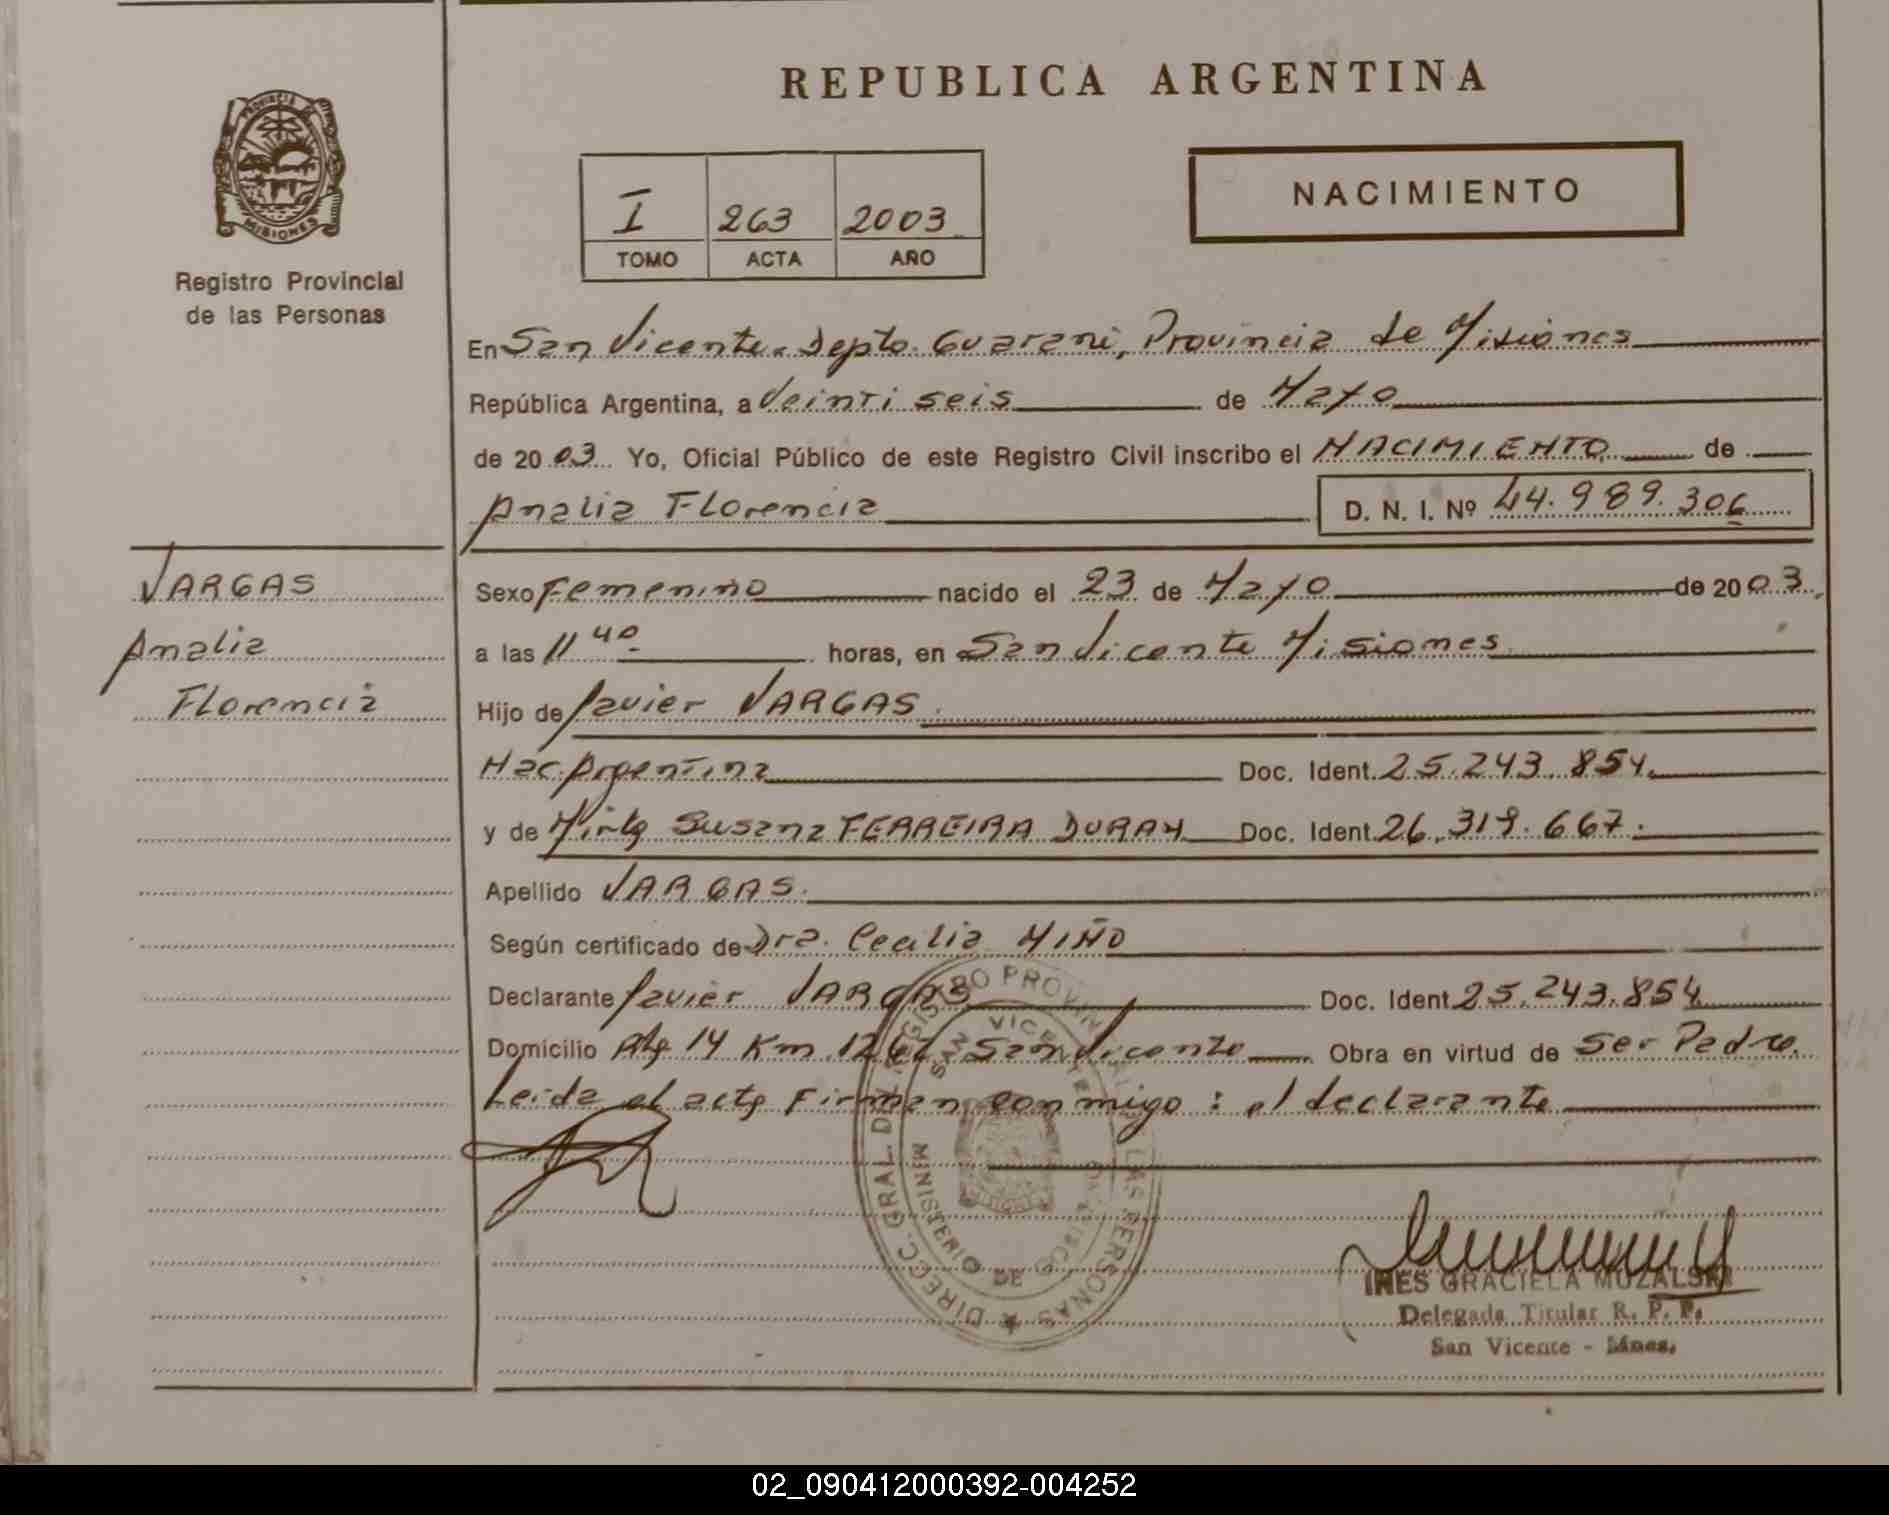 REPUBLICA ARGENTINA
PROVINCIA DE
MISIONES
Registro Provincial
de las Personas
I 263 2003
TOMO ACTA AÑO
NACIMIENTO
En San Vicente. Depto. Guarani, Provincia de Misiones
República Argentina, a Veinti seis de Mayo
de 2003 Yo, Oficial Público de este Registro Civil inscribo el NACIMIENTO de
Analia Florencia D. N. I. Nº 44.989.306
VARGAS
Analia
Florencia
Sexo Femenino nacido el 23 de Mayo de 2003.
a las 11 40 horas, en San Vicente Misiones
Hijo de Javier VARGAS.
Nac. Argentina Doc. Ident. 25.243.854.
y de Mirta Susana FERREIRA DURAN Doc. Ident. 26.319.667.
Apellido VARGAS.
Según certificado de Dra. Cecilia MIÑO
Declarante Javier VARGAS Doc. Ident. 25.243.854
Domicilio Rta 14 Km 126 San Vicente Obra en virtud de Ser Padre.
Leida el acta Firman conmigo: el declarante
DIRECC. GRAL. DEL REGISTRO PROVINCIAL DE LAS PERSONAS
SAN VICENTE
MINISTERIO DE GOBIERNO
INES GRACIELA MUZALSKI
Delegada Titular R. P. P.
San Vicente - Mnes.
02_090412000392-004252